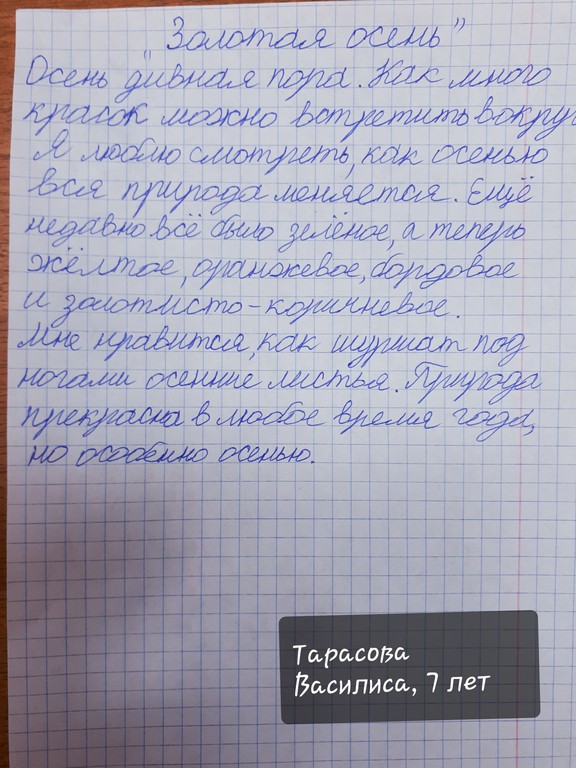 "Золотая осень"
Осень дивная пора. Как много
красок можно встретить вокруг
Я люблю смотреть, как осенью
вся природа меняется. Ещё
недавно всё было зелёное, а теперь
жёлтое, оранжевое, бордовое
и золотисто-коричневое.
Мне нравится, как шуршат под
ногами осенние листья. Природа
прекрасна в любое время года,
но особенно осенью.
Тарасова
Василиса, 7 лет